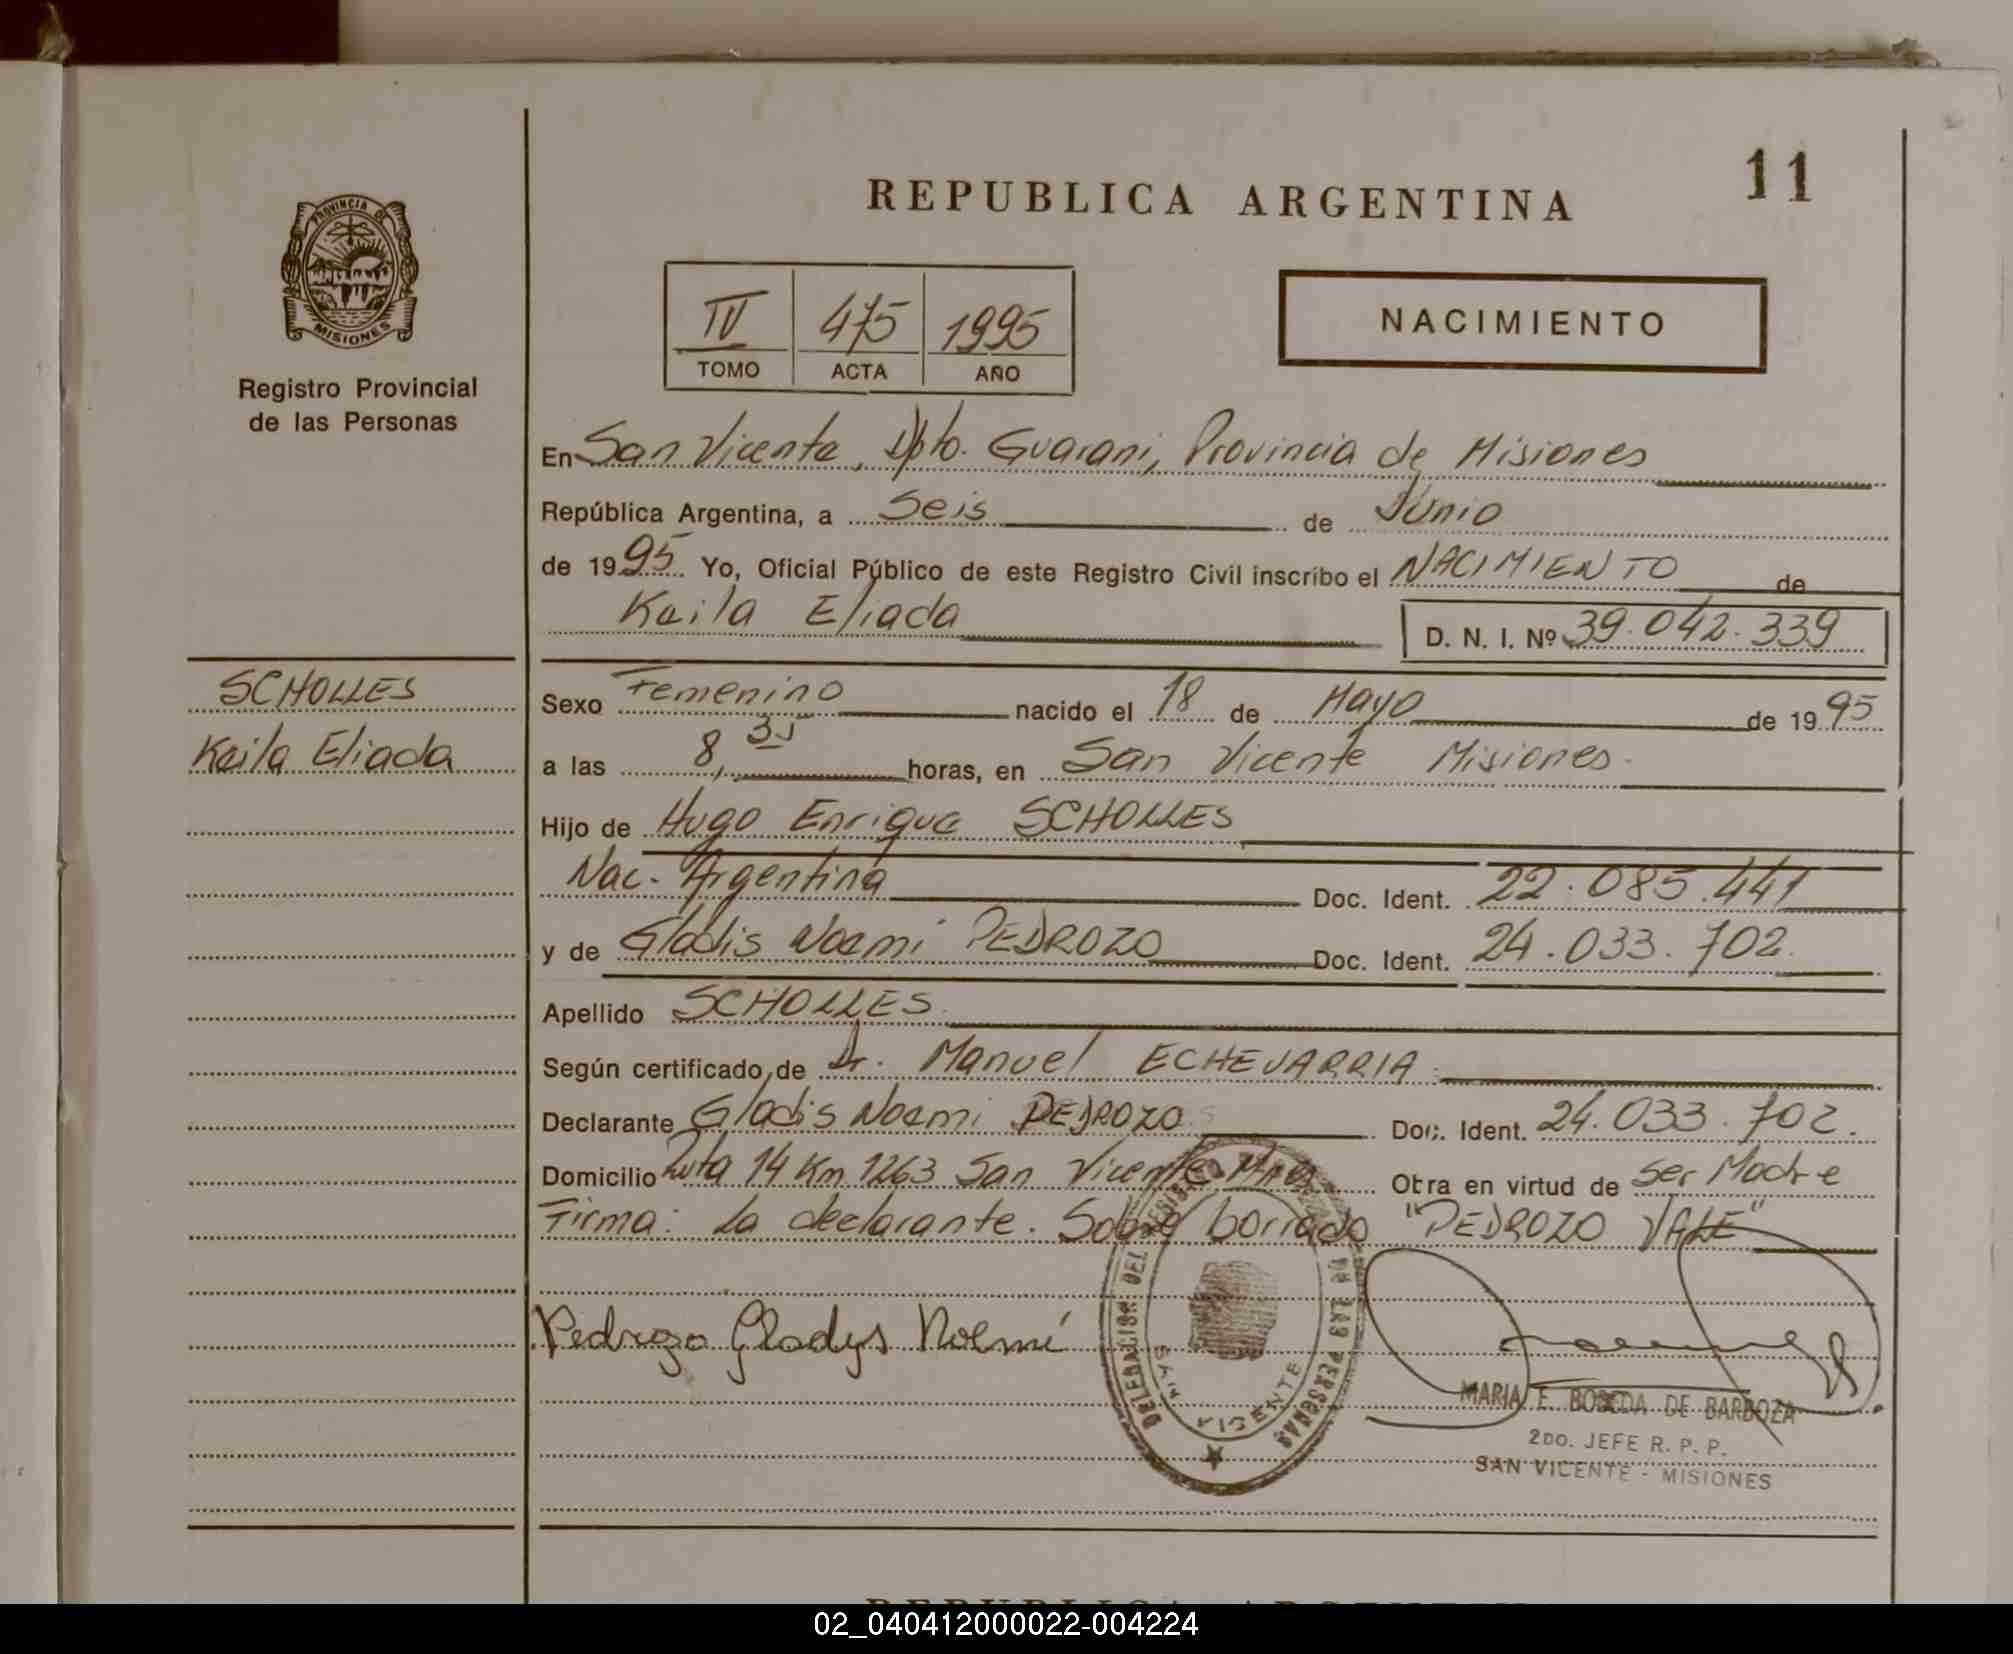 11
REPUBLICA ARGENTINA
PROVINCIA DE
MISIONES
Registro Provincial
de las Personas
IV 475 1995
TOMO ACTA AÑO
NACIMIENTO
En San Vicente, Dpto. Guarani, Provincia de Misiones
República Argentina, a Seis de Junio
de 1995 Yo, Oficial Público de este Registro Civil inscribo el NACIMIENTO de
Keila Eliada D. N. I. Nº 39.042.339
SCHOLLES
Keila Eliada
Sexo Femenino nacido el 18 de Mayo de 1995
a las 8,35 horas, en San Vicente Misiones.
Hijo de Hugo Enrique SCHOLLES
Nac. Argentina Doc. Ident. 22.085.441
y de Gladis Noemi PEDROZO Doc. Ident. 24.033.702.
Apellido SCHOLLES.
Según certificado de Dr. Manuel ECHEVARRIA.
Declarante Gladis Noemi PEDROZO Doc. Ident. 24.033.702.
Domicilio Ruta 14 Km 1263 San Vicente Mnes Obra en virtud de Ser Madre
Firma: La declarante. Sobre borrado "PEDROZO VALE"
Pedrozo Gladys Noemí
DELEGACION DEL REGISTRO DE LAS PERSONAS
SAN VICENTE
MARIA E. BOBEDA DE BARBOZA
2DO. JEFE R. P. P.
SAN VICENTE - MISIONES
REPUBLICA ARGENTINA
02_040412000022-004224